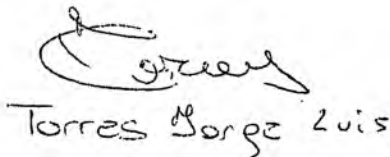 Torres
Torres Jorge Luis